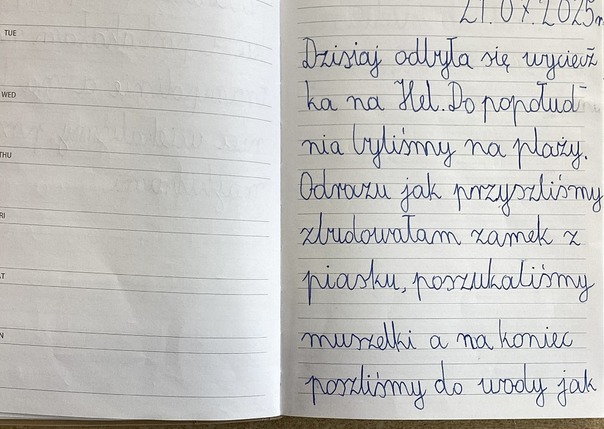 TUE
WED
THU
RI
AT
N
21.07.2025r
Dzisiaj odbyła się wyciecz
ka na Hel. Do popołud-
nia byliśmy na plaży.
Odrazu jak przyszliśmy
zbudowałam zamek z
piasku, poszukaliśmy
muszelki a na koniec
poszliśmy do wody jak